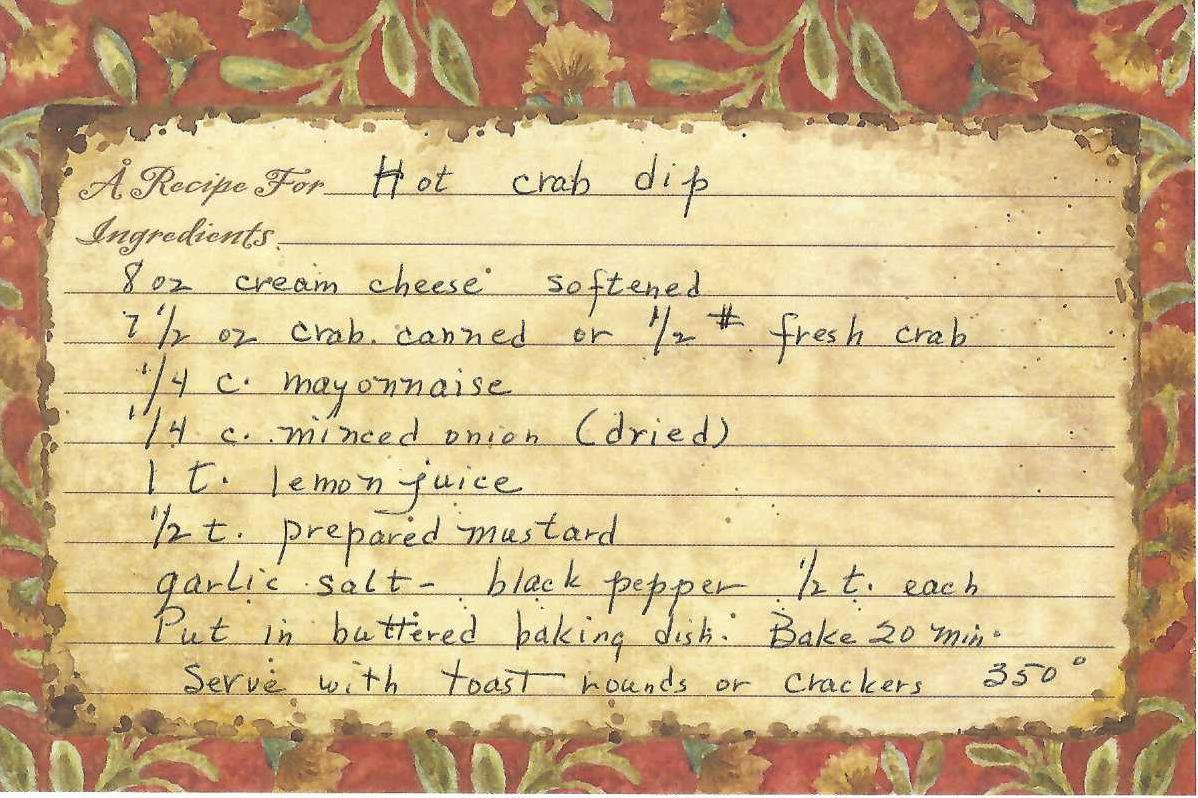 A Recipe For Hot crab dip
Ingredients
8 oz cream cheese softened
7 1/2 oz crab. canned or 1/2 # fresh crab
1/4 c. mayonnaise
1/4 c. minced onion (dried)
1 t. lemon juice
1/2 t. prepared mustard
garlic salt - black pepper 1/2 t. each
Put in buttered baking dish. Bake 20 min.
Serve with toast rounds or crackers 350°